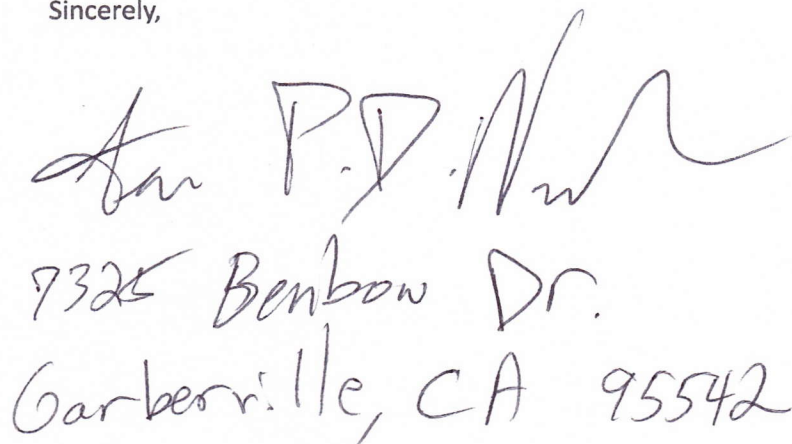 Sincerely,
P. D.
7325 Benbow Dr.
Garberville, CA 95542